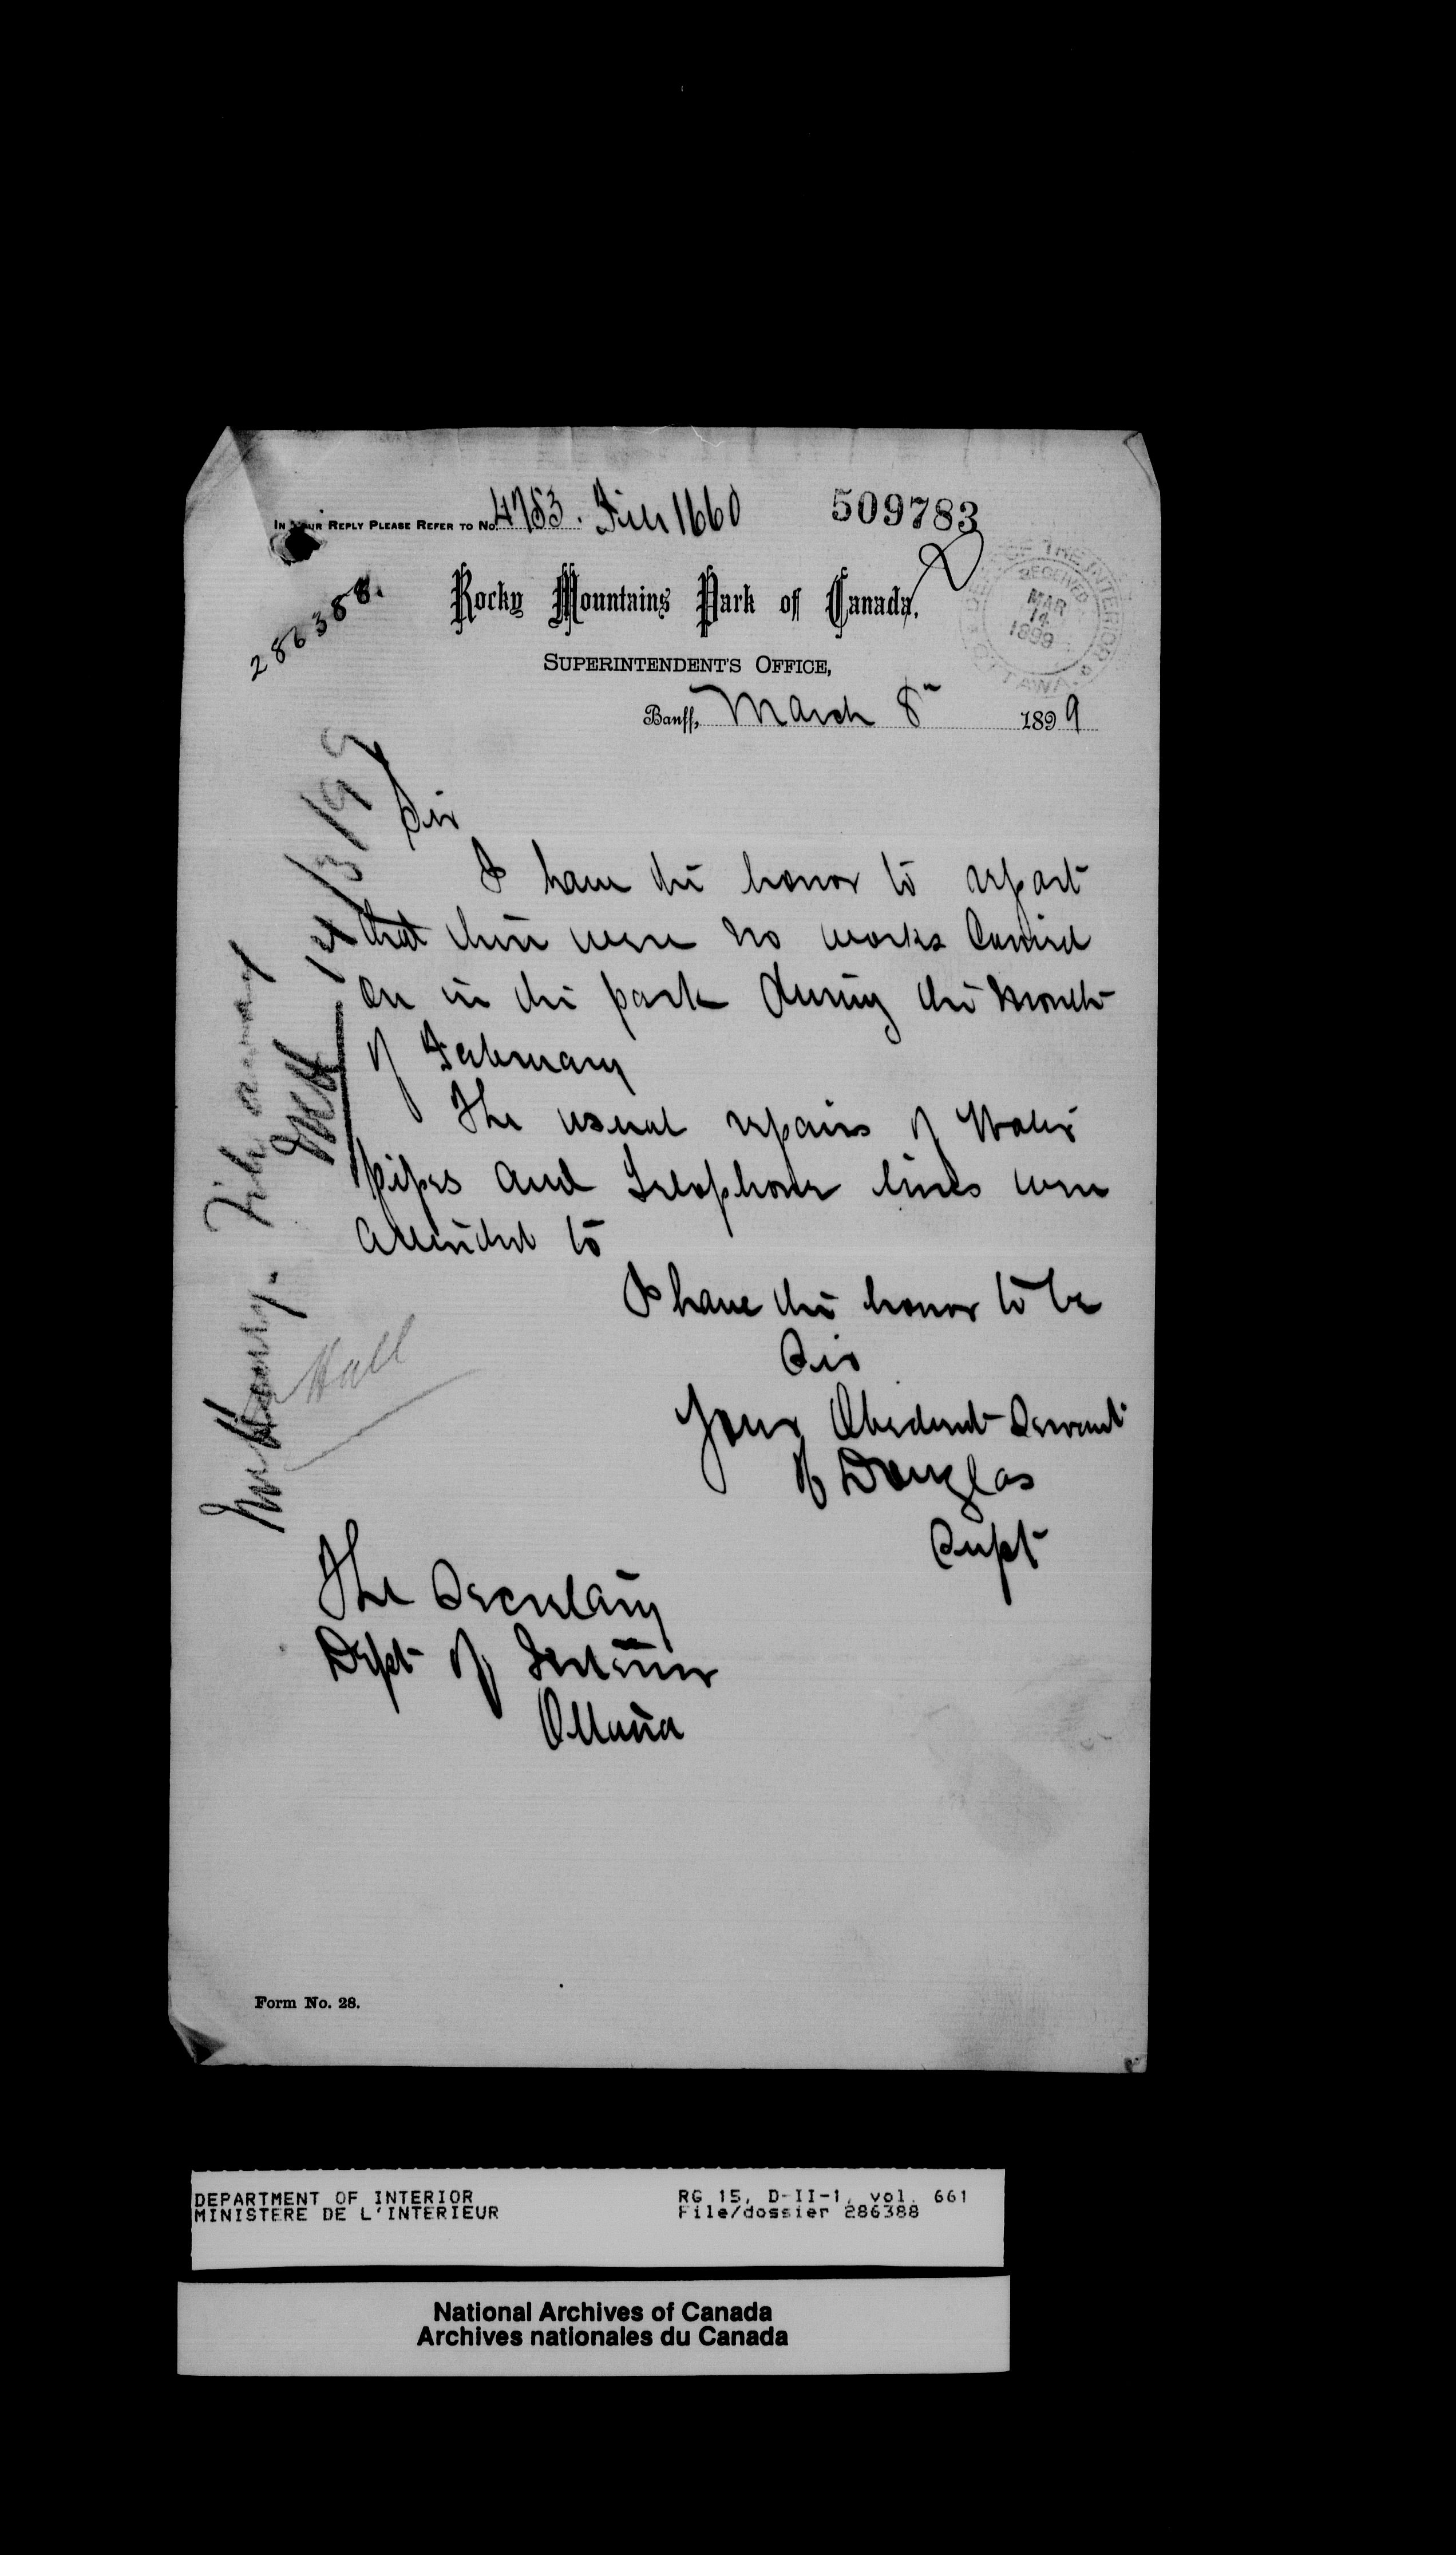 IN YOUR REPLY PLEASE REFER TO No. 4783. File 1660
509783
286388.
Rocky Mountains Park of Canada.
SUPERINTENDENT'S OFFICE,
DEPT. OF THE INTERIOR
RECEIVED
MAR
14
1899
OTTAWA
Banff, March 8th 1899
Sir
I have the honor to report
that there were no works carried
on in the park during the month
of February
The usual repairs of Water
pipes and Telephone lines were
attended to
I have the honor to be
Sir
Your Obedient Servant
H Douglas
Supt
The Secretary
Dept of Interior
Ottawa
14/3/99
File
Hall
Form No. 28.
DEPARTMENT OF INTERIOR
MINISTERE DE L'INTERIEUR
RG 15, D-II-1, vol. 661
File/dossier 286388
National Archives of Canada
Archives nationales du Canada